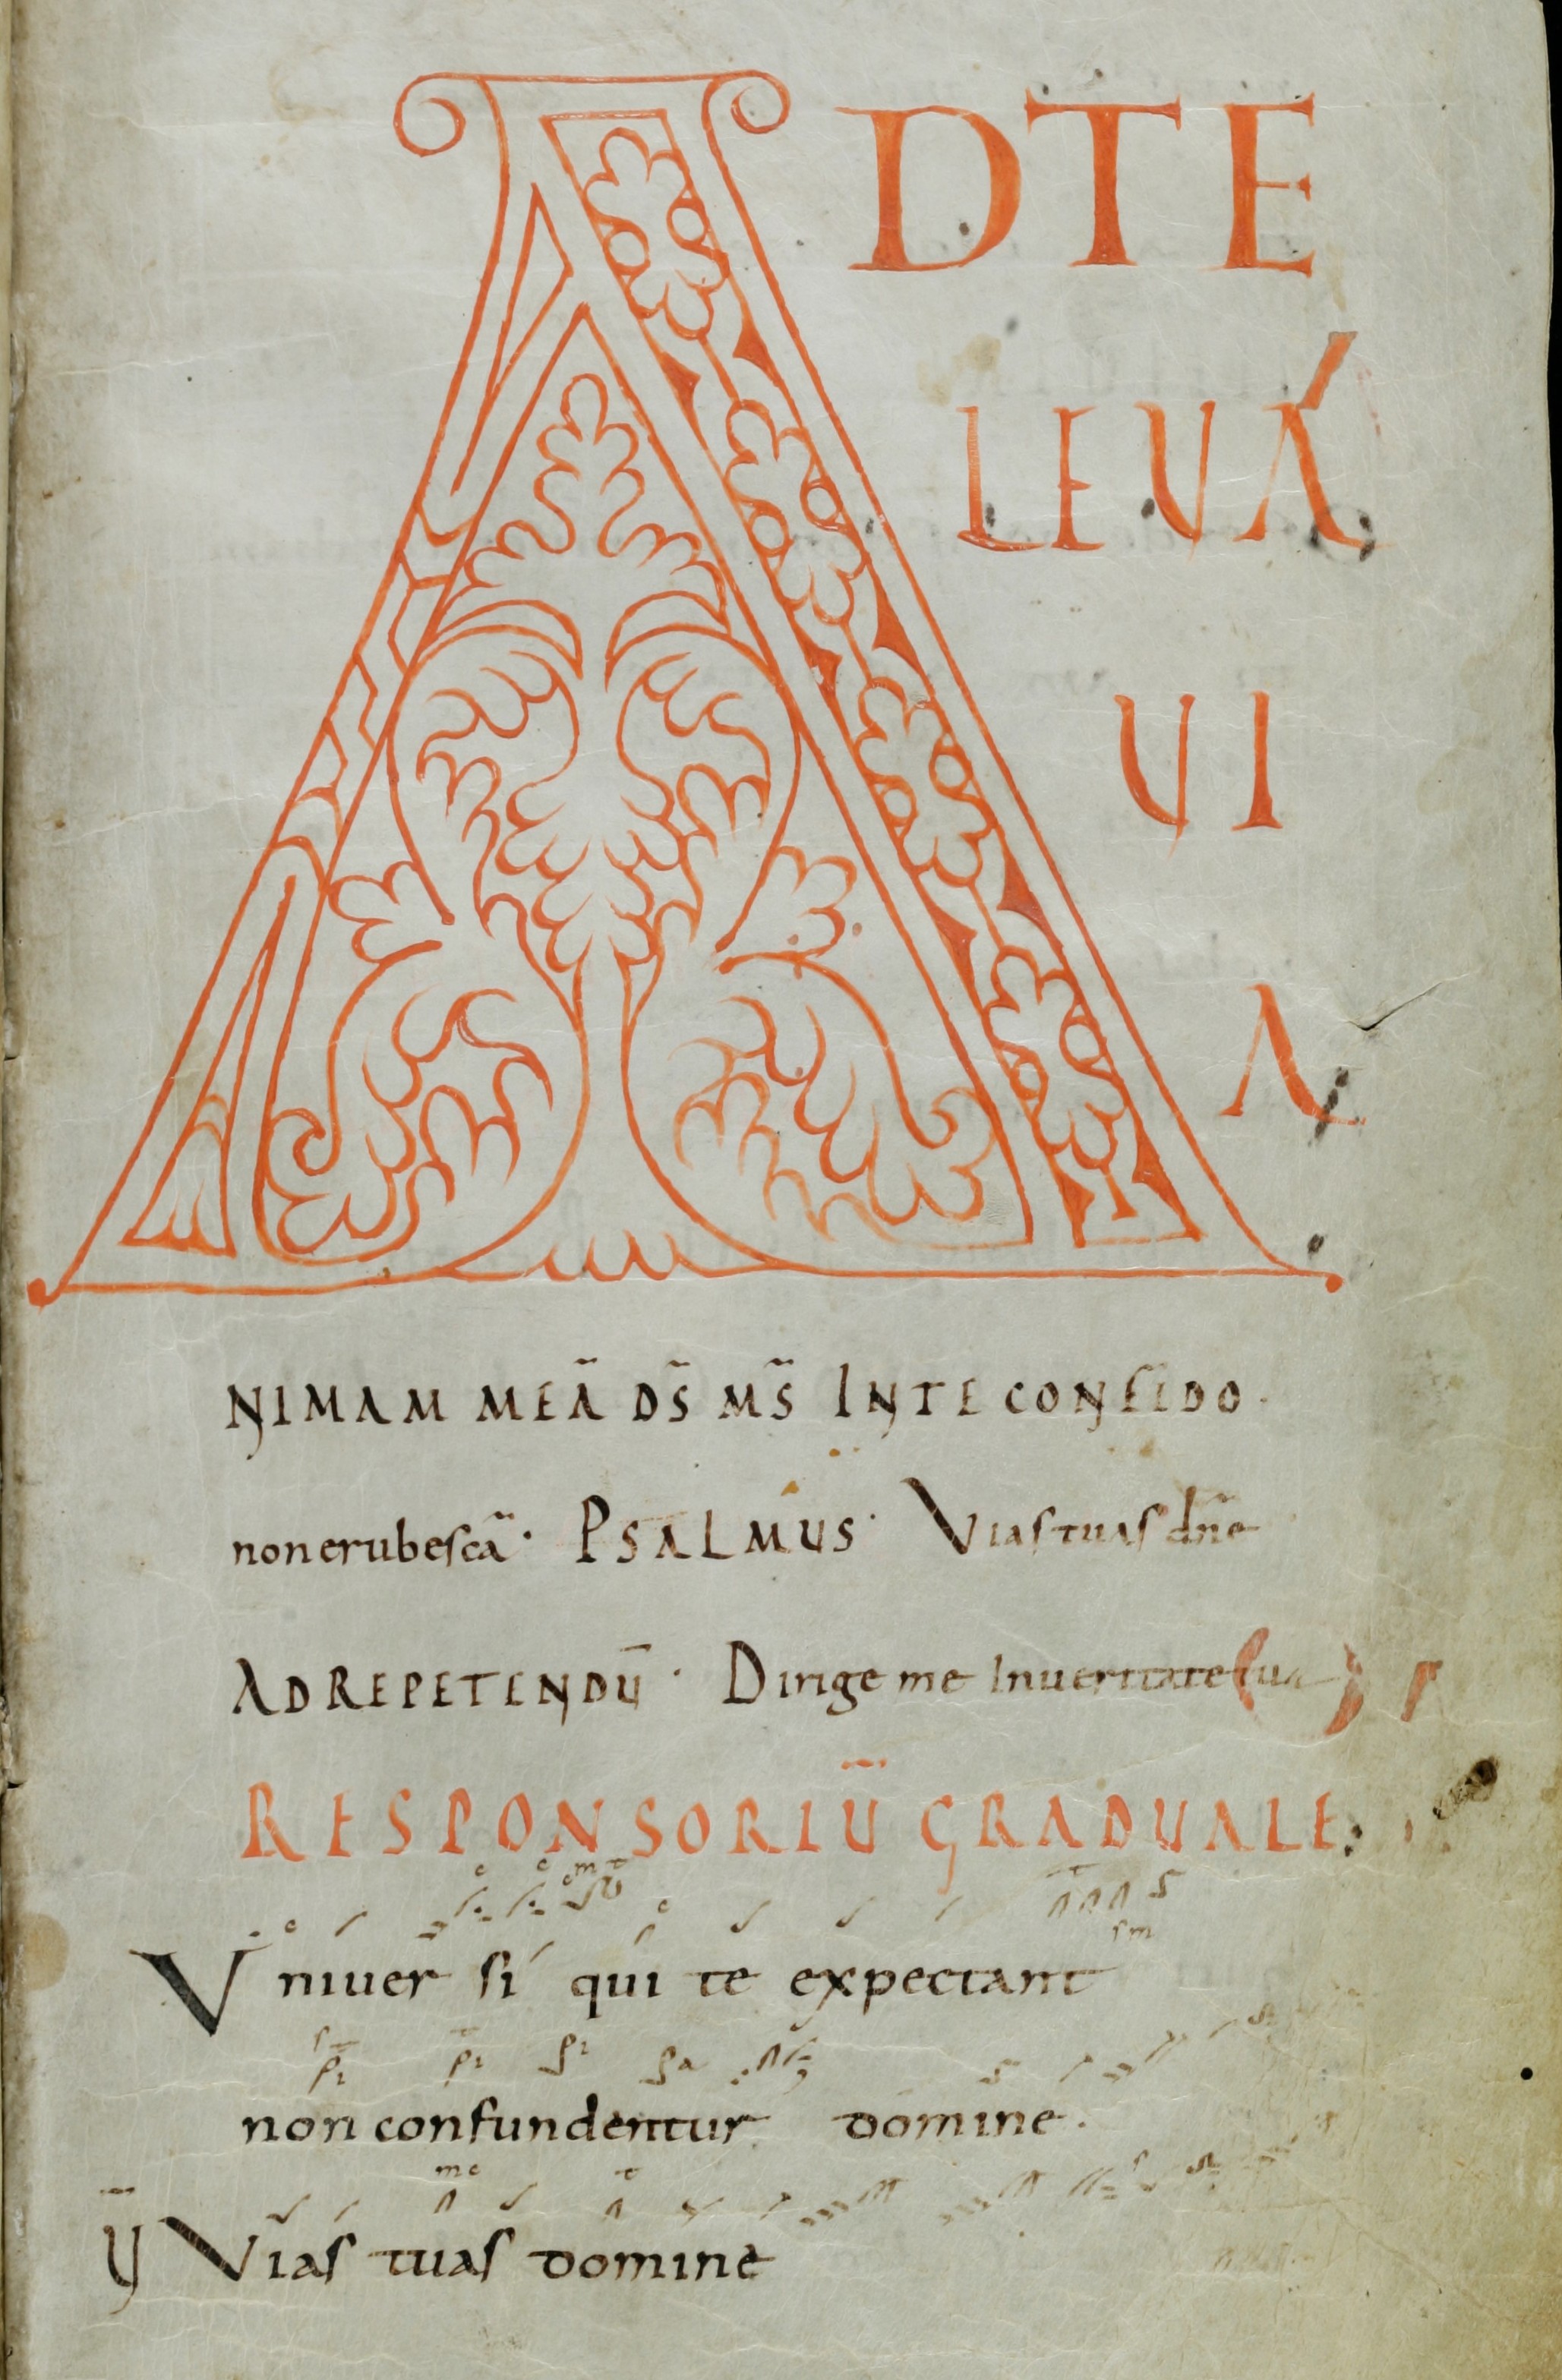 AD TE
LEUA
UI
A
NIMAM MEĀ DS̄ MS̄ IN TE CONFIDO·
non erubescā· PSALMUS· Vias tuas dn̄e
AD REPETENDŪ· Dirige me In ueritate tua
RESPONSORIŪ GRADUALE
Vniuer si qui te expectant
non confundentur domine.
V̄ Vias tuas domine